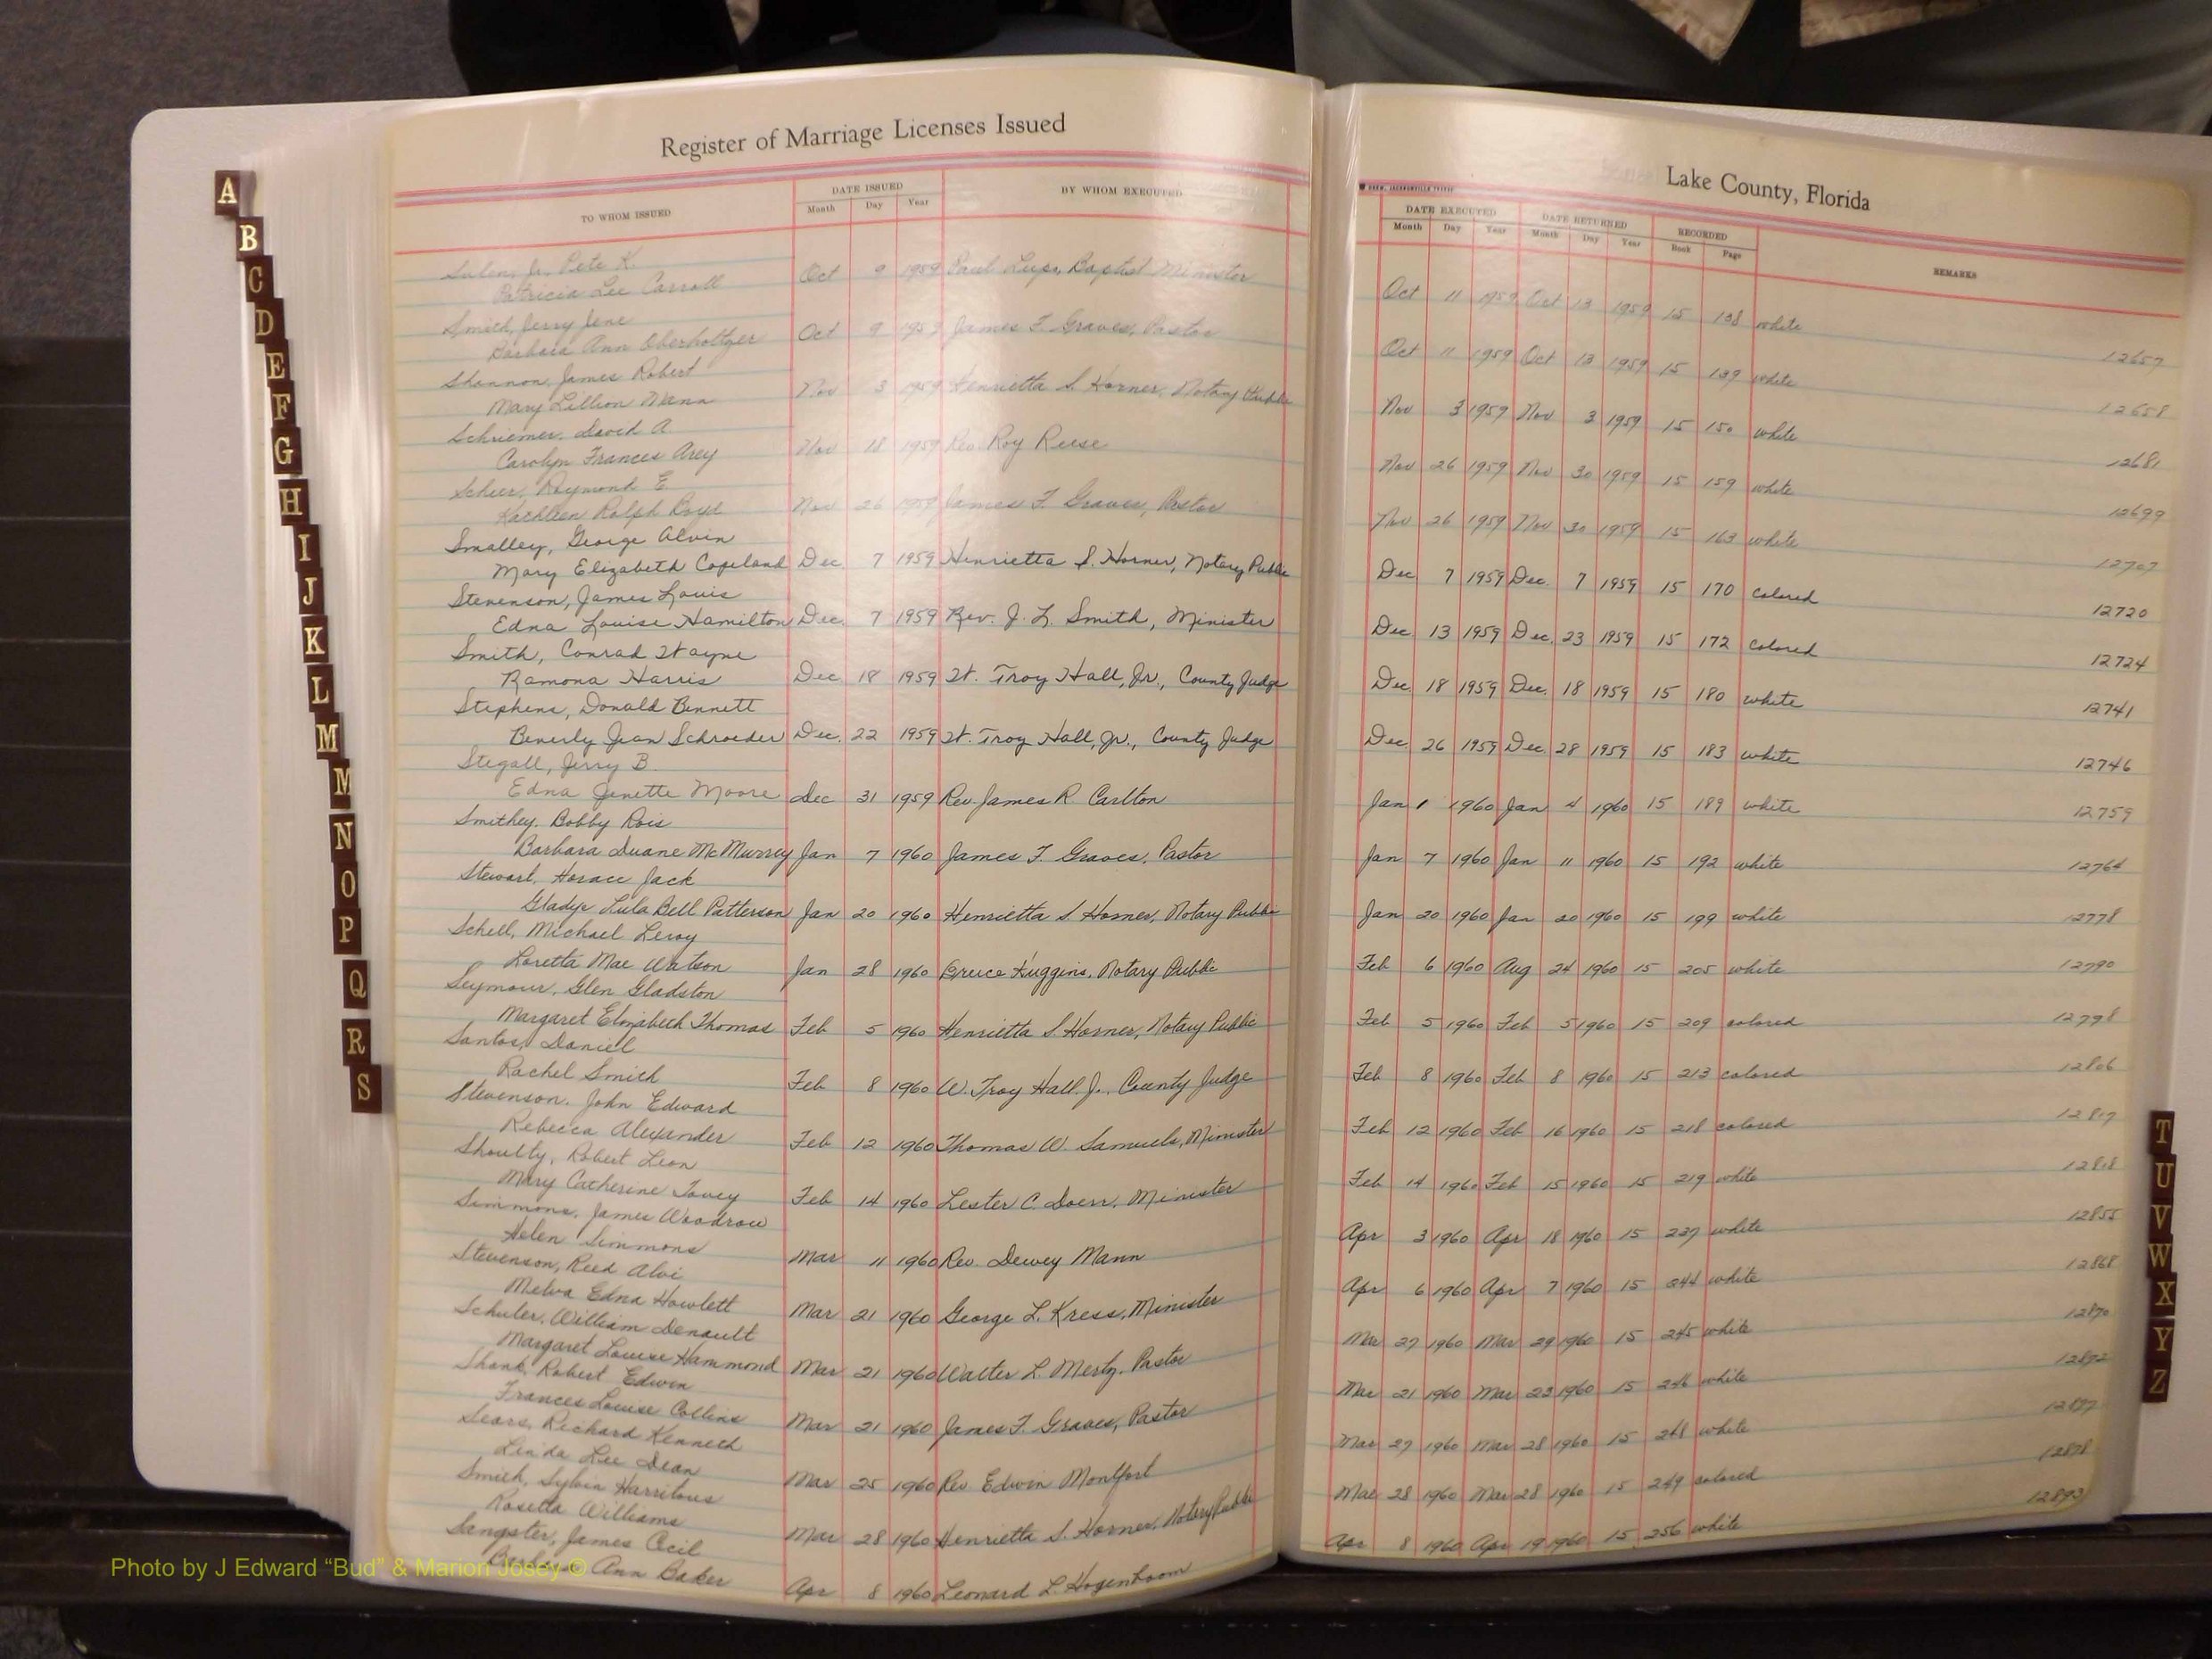 Register of Marriage Licenses Issued
TO WHOM ISSUED DATE ISSUED BY WHOM EXECUTED
Month Day Year
Jr. Pete K.
Patricia Lee Carroll Oct 9 1959 Paul Baptist Minister
Smith, Jerry Jene
Barbara Ann Oberholtzer Oct 9 1959 James T. Graves, Pastor
Shannon, James Robert
Mary Lillian Mann Nov 3 1959 Henrietta S Horner, Notary Public
Schriemer, David A
Carolyn Frances Arey Nov 18 1959 Rev Roy Reese
Raymond E
Kathleen Rolph Boyd Nov 26 1959 James T Graves, Pastor
Smalley, George Alvin
Mary Elizabeth Copeland Dec 7 1959 Henrietta S. Horner, Notary Public
Stevenson, James Louis
Edna Louise Hamilton Dec. 7 1959 Rev. J. L. Smith, Minister
Smith, Conrad Wayne
Ramona Harris Dec. 18 1959 W. Troy Hall, Jr., County Judge
Stephens, Donald Bennett
Beverly Jean Schroeder Dec. 22 1959 W. Troy Hall, Jr., County Judge
Stegall, Jerry B.
Edna Jenette Moore Dec 31 1959 Rev. James R Carlton
Smithey, Bobby Rois
Barbara Duane McMurrey Jan 7 1960 James T. Graves, Pastor
Stewart, Horace Jack
Gladys Lula Bell Patterson Jan 20 1960 Henrietta S Horner, Notary Public
Schell, Michael Leroy
Loretta Mae Watson Jan 28 1960 Bruce Huggins, Notary Public
Seymour, Glen Gladston
Margaret Elizabeth Thomas Feb 5 1960 Henrietta S Horner, Notary Public
Santos, Daniel
Rachel Smith Feb 8 1960 W. Troy Hall. Jr., County Judge
Stevenson, John Edward
Rebecca Alexander Feb 12 1960 Thomas W. Samuels, Minister
Shoulty, Robert Leon
Mary Catherine Tovey Feb 14 1960 Lester C. Doerr, Minister
Simmons, James Woodrow
Helen Simmons Mar 11 1960 Rev. Dewey Mann
Stevenson, Reed Alvi
Melva Edna Howlett Mar 21 1960 George L. Kress, Minister
Schuler, William Denault
Margaret Louise Hammond Mar 21 1960 Walter L. Mertz, Pastor
Shank, Robert Edwin
Frances Louise Collins Mar 21 1960 James T. Graves, Pastor
Sears, Richard Kenneth
Linda Lee Dean Mar 25 1960 Rev Edwin Montfort
Smith, Sylvia
Rosetta Williams Mar 28 1960 Henrietta S. Horner, Notary Public
Sangster, James Cecil
Ann Baker Apr 8 1960 Leonard L. Hogenboom
Lake County, Florida
DATE EXECUTED DATE RETURNED RECORDED REMARKS
Month Day Year Month Day Year Book Page
Oct 11 1959 Oct 13 1959 15 138 white 12657
Oct 11 1959 Oct 13 1959 15 139 white 12658
Nov 3 1959 Nov 3 1959 15 150 white 12681
Nov 26 1959 Nov 30 1959 15 159 white 12699
Nov 26 1959 Nov 30 1959 15 163 white 12707
Dec 7 1959 Dec. 7 1959 15 170 colored 12720
Dec. 13 1959 Dec. 23 1959 15 172 colored 12724
Dec. 18 1959 Dec. 18 1959 15 180 white 12741
Dec. 26 1959 Dec. 28 1959 15 183 white 12746
Jan 1 1960 Jan 4 1960 15 189 white 12759
Jan 7 1960 Jan 11 1960 15 192 white 12764
Jan 20 1960 Jan 20 1960 15 199 white 12778
Feb 6 1960 Aug 24 1960 15 205 white 12790
Feb 5 1960 Feb 5 1960 15 209 colored 12798
Feb 8 1960 Feb 8 1960 15 213 colored 12806
Feb 12 1960 Feb 16 1960 15 218 colored 12817
Feb 14 1960 Feb 15 1960 15 219 white 12818
Apr 3 1960 Apr 18 1960 15 237 white 12855
Apr 6 1960 Apr 7 1960 15 244 white 12868
Mar 27 1960 Mar 29 1960 15 245 white 12870
Mar 21 1960 Mar 23 1960 15 246 white 12872
Mar 27 1960 Mar 28 1960 15 248 white 12877
Mar 28 1960 Mar 28 1960 15 249 colored 12878
Apr 8 1960 Apr 19 1960 15 256 white 12893
A
B
C
D
E
F
G
H
I
J
K
L
M
M
N
O
P
Q
R
S
T
U
V
W
X
Y
Z
Photo by J Edward “Bud” & Marion Josey ©